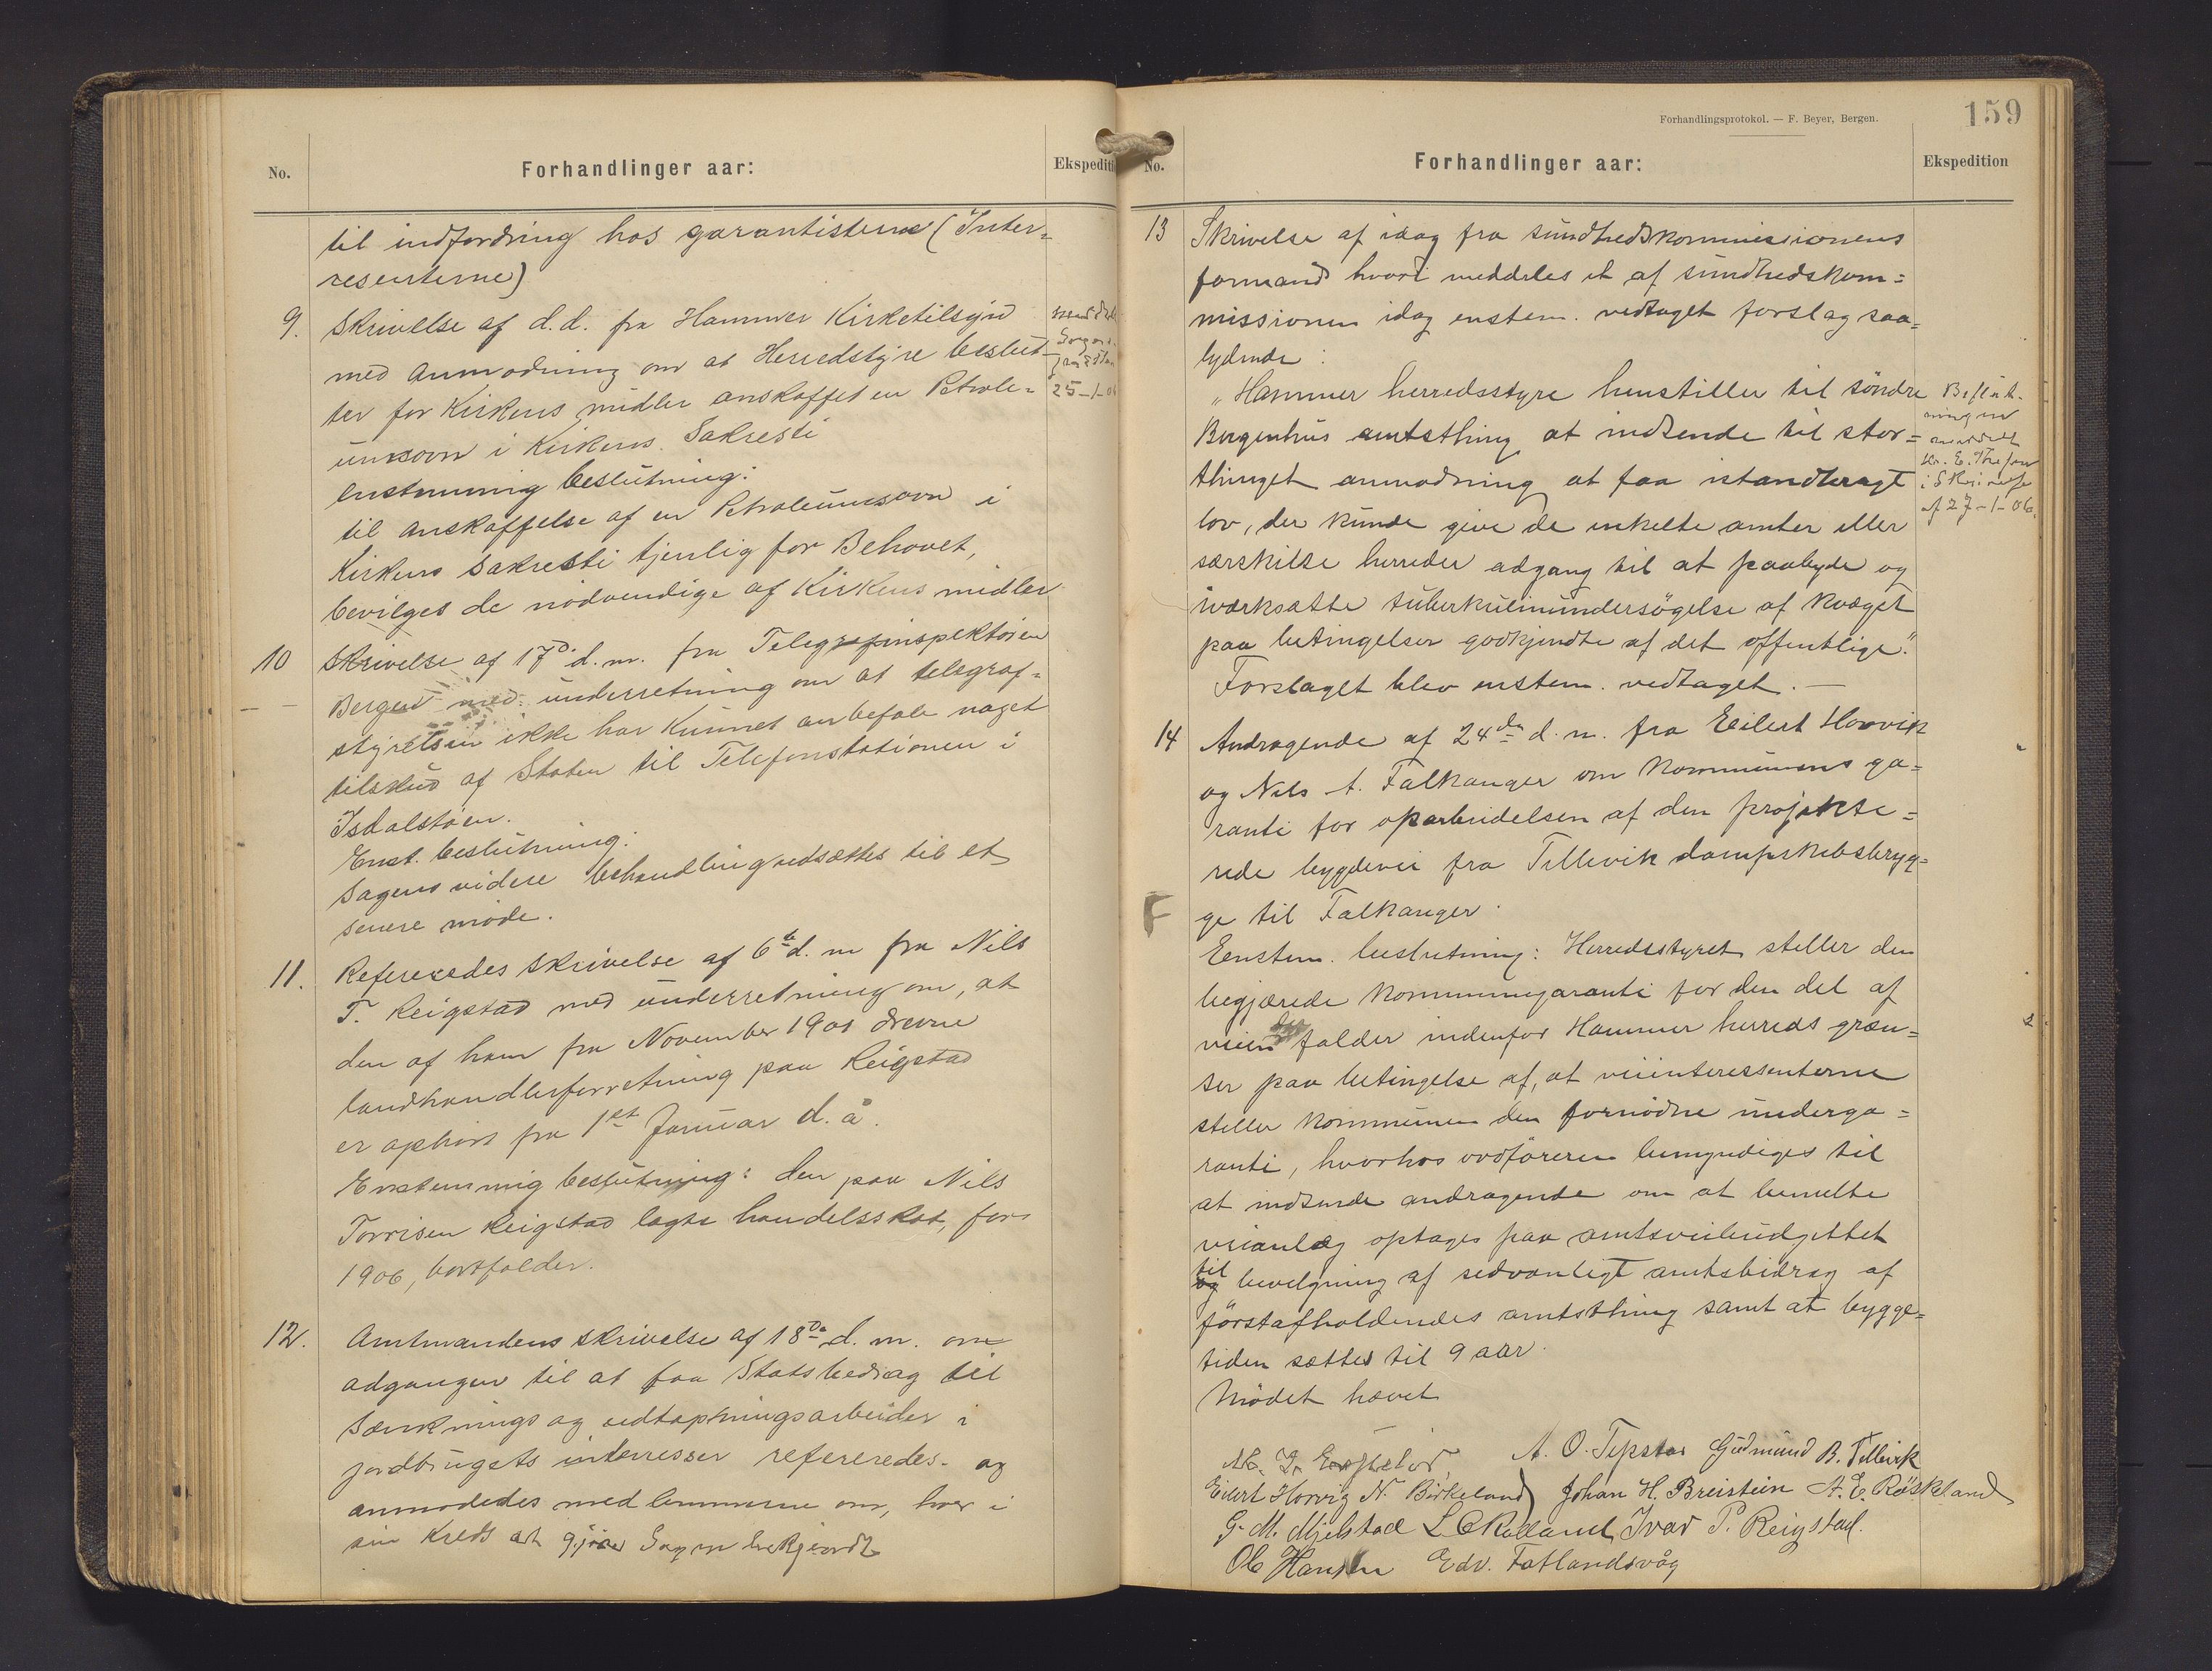 No.
Forhandlinger aar:
Ekspediti
til indfordring hos garantisterne (Inter=
resenterne)
9. Skrivelse af d.d. fra Hammer Kirketilsyn
med Anmodning om at Herredstyre beslut-
ter for Kirkens midler anskaffet en Petrole-
umsovn i Kirkens Sakresti
Enstemmig beslutning:
til anskaffelse af en Petroleumsovn i
Kirkens Sakresti tjenlig for Behovet,
bevilges de nødvendige af Kirkens midler
25-1-06
10 Skrivelse af 17d d.m. fra Telegrafinspektøren
Bergen med underretning om at telegraf-
styrelsen ikke har kunnet anbefale noget
tilskud af Staten til Telefonstationen i
Isdalstøen.
Enst. beslutning:
Sagens videre behandling udsættes til et
senere møde.
11. Refereredes skrivelse af 6te d. m fra Nils
T. Reigstad med underretning om, at
den af ham fra November 1901 drevne
landhandlerforretning paa Reigstad
er ophørt fra 1st Januar d. å.
Enstemmig beslutning: den paa Nils
Torrisen Reigstad lagte handelsskat, for
1906, bortfalder.
12. Amtmandens skrivelse af 18de d. m. om
adgangen til at faa Statsbedrag til
Sænknings og udtapningsarbeider i
jordbrugets interresser refereredes. og
anmodedes medlemmerne om, hver i
sin Kreds at gjøre Sagen bekjendt
Forhandlingsprotokol. — F. Beyer, Bergen.
159
No.
Forhandlinger aar:
Ekspedition
13 Skrivelse af idag fra sundhedskommissionens
formand hvori meddeles et af sundhedskom=
missionen idag enstem. vedtaget forslag saa=
lydende:
"Hammer herredsstyre henstiller til søndre
Bergenhus amtsthing at indsende til stor=
thinget anmodning at faa istandbragt
lov, der kunde give de enkelte amter eller
særskilte herreder adgang til at paabyde og
iværksætte tuberkulinundersøgelse af kvæget
paa betingelser godkjendte af det offentlige."
Forslaget blev enstem. vedtaget. —
Beslut-
ningen
meddelt
Hr. E.
i Skrivelse
af 27-1-06.
14 Andragende af 24de d. m. fra Eilert Horvik
og Nils A. Falkanger om kommunens ga=
ranti for oparbeidelsen af den projekte=
rede bygdevei fra Tellevik dampskibsbryg=
ge til Falkanger.
F
Eenstem. beslutning: Herredsstyret steller den
begjærede kommunegaranti for den del af
veien der falder indenfor Hammer herreds græn=
ser paa betingelse af, at veiinteressenterne
steller kommunen den fornødne underga=
ranti, hvorhos ordføreren bemyndiges til
at indsende andragende om at bemeldte
veianlæg optages paa amtsveibudgettet
og til bevilgning af sedvanligt amtsbidrag af
førstafholdendes amtsthing samt at bygge=
tiden sættes til 9 aar.
Mødet hævet
A. O. Tepstad Gudmund B. Tellevik
Eilert Horvig N. Birkeland Johan H. Breistein A. E. Røskland
G. M. Mjelstad L C Kalland Ivar P. Reigstad.
Ole Hansen Edv. Fotlandsvåg